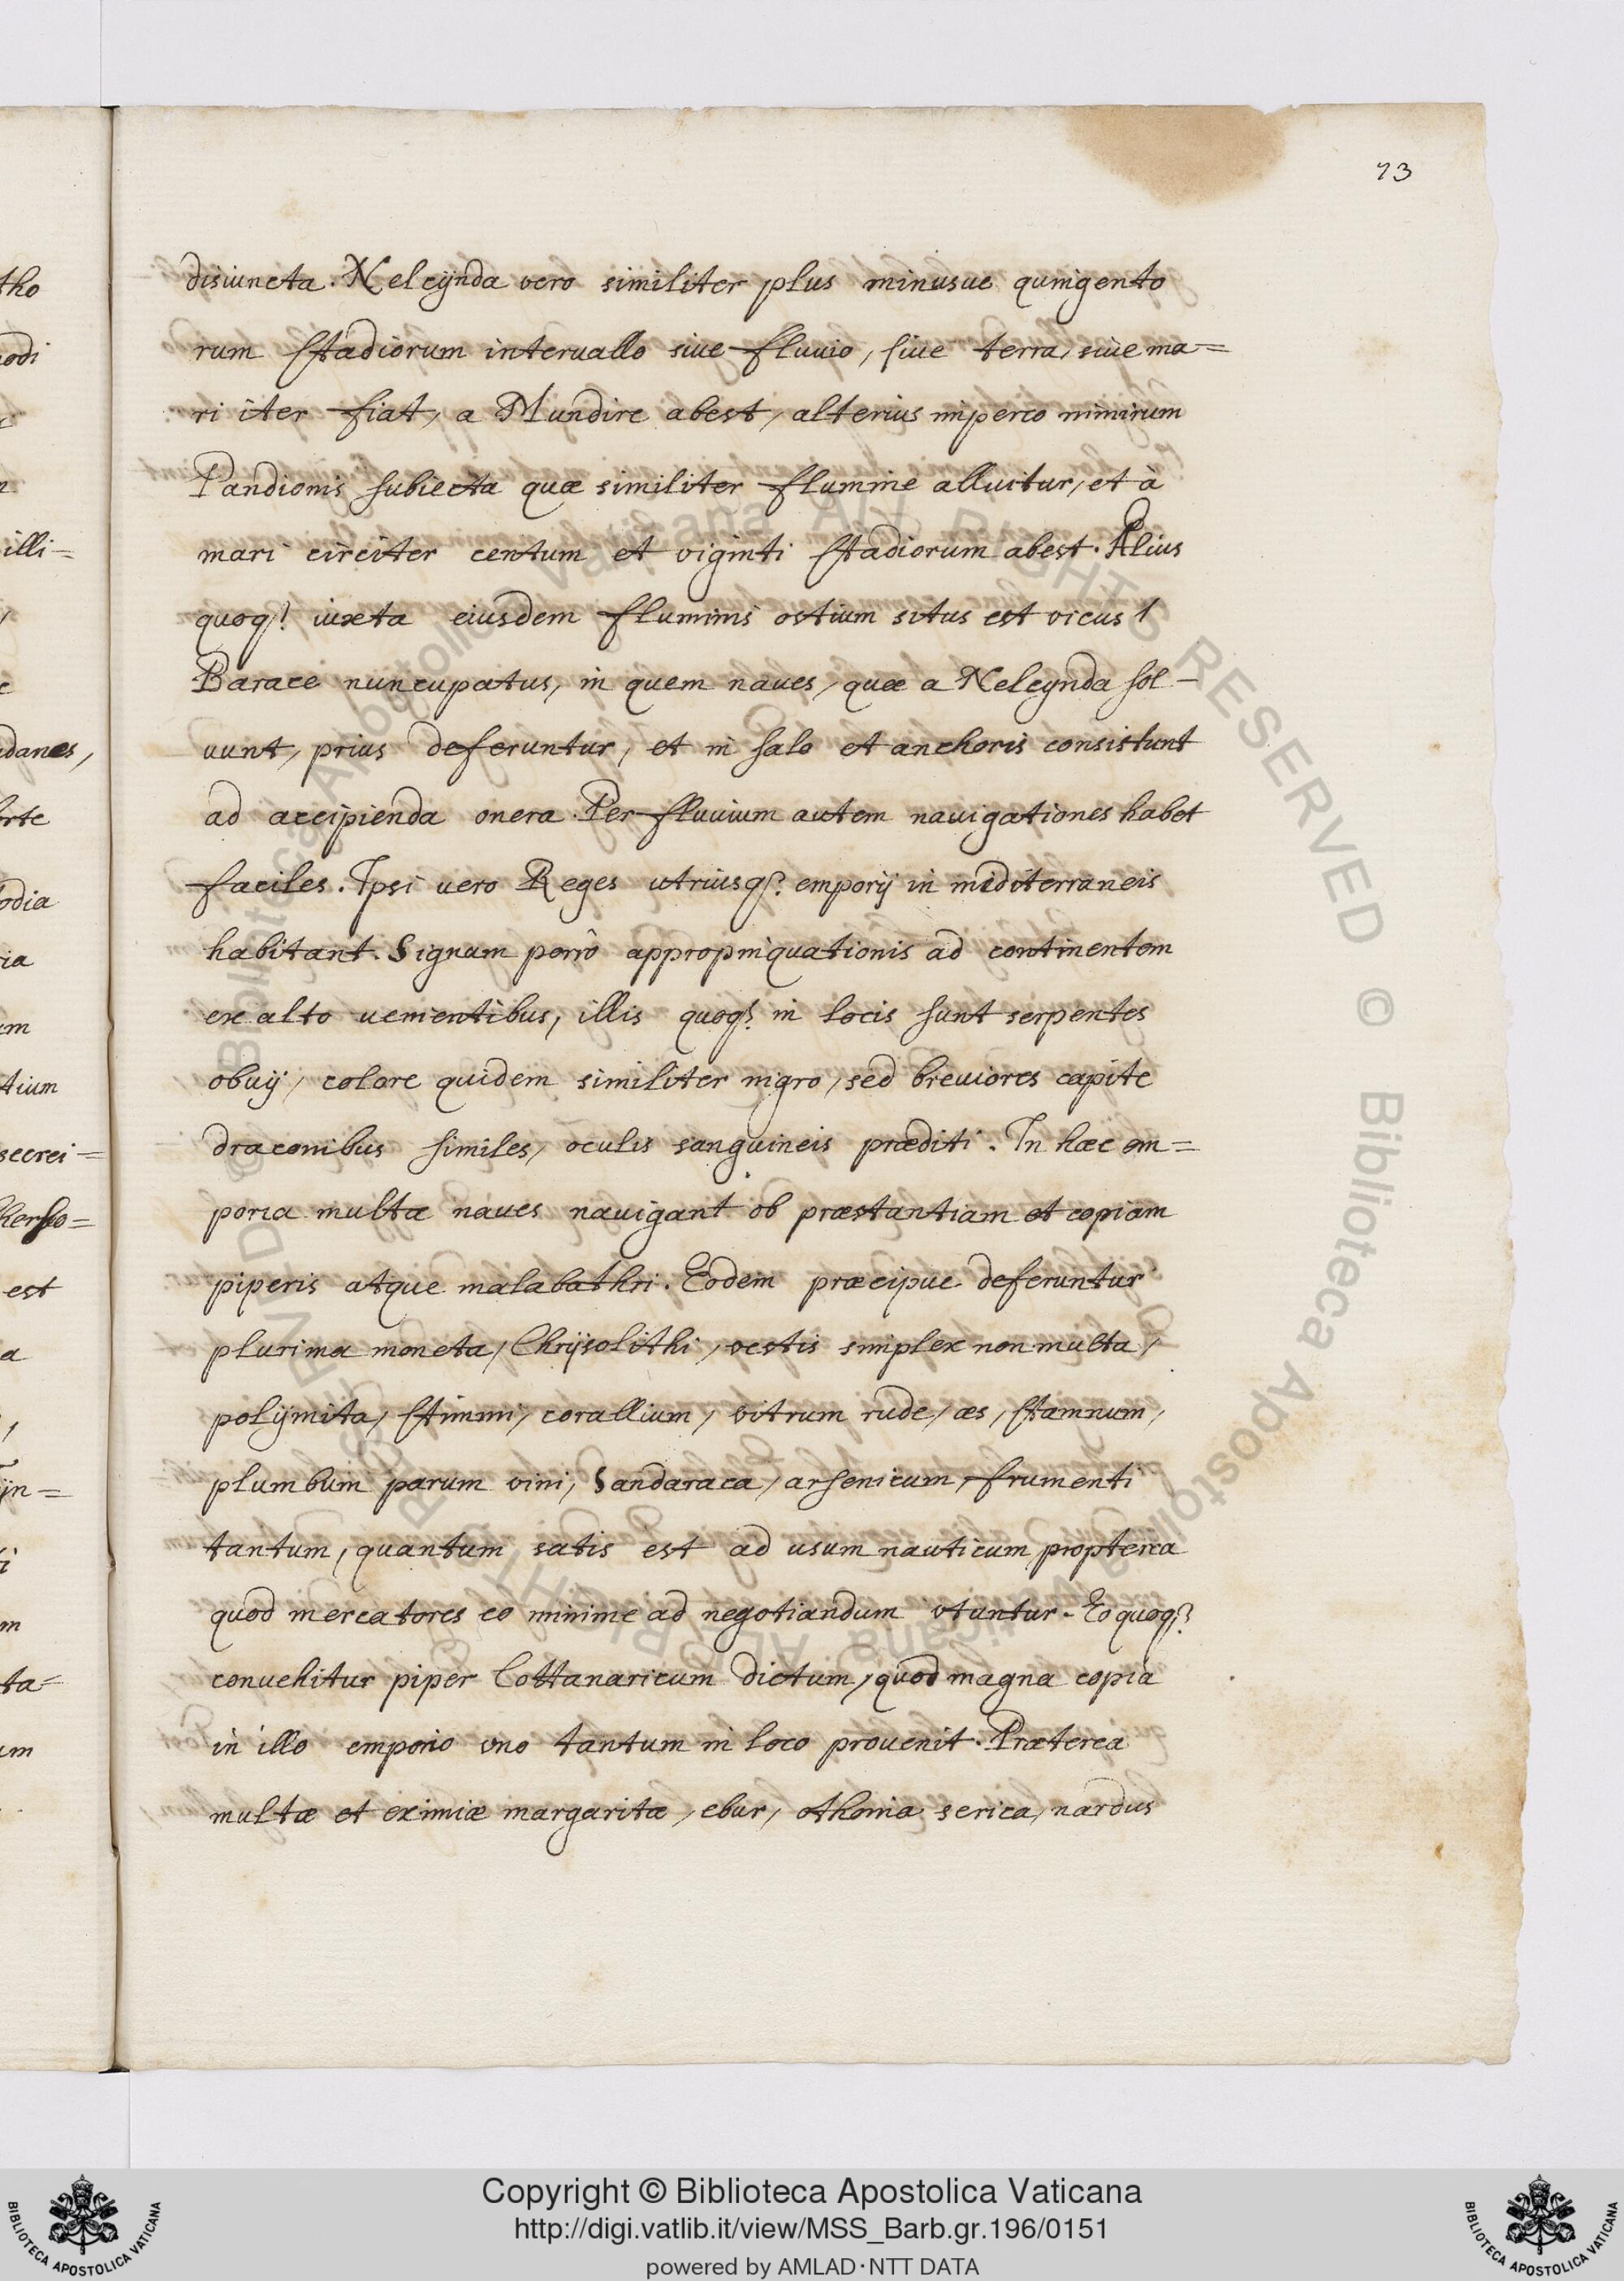 73
disiuncta. Nelcÿnda vero similiter plus minusue quingento
rum stadiorum interuallo siue fluuio, siue terra, siue ma=
ri iter fiat, a Mundire abest, alterius imperio nimirum
Pandionis subiecta quæ similiter flumine alluitur, et à
mari circiter centum et viginti stadiorum abest. Alius
quoq; iuxta eiusdem fluminis ostium situs est vicus
Barace nuncupatus, in quem naues, quæ a Nelcynda sol-
uunt, prius deferuntur, et in salo et anchoris consistunt
ad accipienda onera. Per fluuium autem nauigationes habet
faciles. Ipsi vero Reges utriusq; emporij in mediterraneis
habitant. Signum porrò appropinquationis ad continentem
ex alto uenientibus, illis quoq; in locis sunt serpentes
obuij, colore quidem similiter nigro, sed breuiores capite
draconibus similes, oculis sanguineis præditi. In hæc em=
poria multæ naues nauigant ob præstantiam et copiam
piperis atque malabathri. Eodem præcipue deferuntur
plurima moneta, Chrÿsolithi, vestis simplex non multa,
polÿmita, stimmi, corallium, vitrum rude, æs, stamnum,
plumbum parum vini, Sandaraca, arsenicum, frumenti
tantum, quantum satis est ad usum nauticum propterea
quod mercatores eo minime ad negotiandum vtuntur. Eo quoq;
conuehitur piper Cottanaricum dictum, quod magna copia
in illo emporio vno tantum in loco prouenit. Præterea
multæ et eximiæ margaritæ, ebur, othonia serica, nardus
tho
odi
illi=
danes,
odia
ia
tium
est
ta=
Copyright © Biblioteca Apostolica Vaticana
http://digi.vatlib.it/view/MSS_Barb.gr.196/0151
powered by AMLAD·NTT DATA
BIBLIOTECA APOSTOLICA VATICANA
BIBLIOTECA APOSTOLICA VATICANA